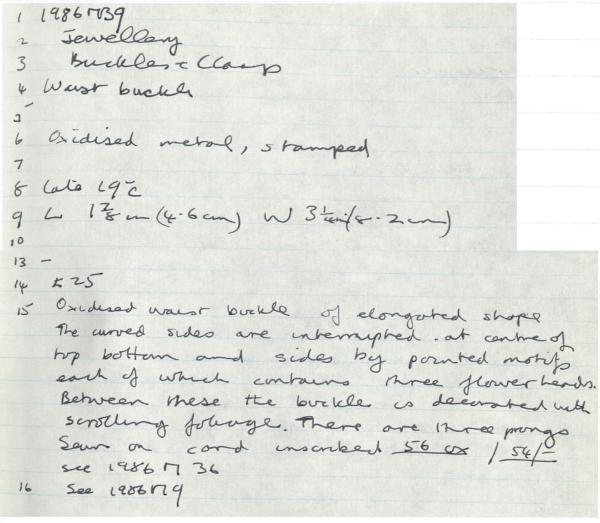 1 1986 M39
2 Jewellery
3 Buckles + Clasp
4 Waist buckle
5 -
6 Oxidised metal, stamped
7
8 Late 19th C
9 L 1 7/8 in (4.6cm) W 3 1/4 in (8.2cm)
10
13 -
14 £25
15 Oxidised waist buckle of elongated shape
The curved sides are interrupted at centre of
top bottom and sides by pointed motifs
each of which contains three flower heads.
Between these the buckle is decorated with
scrolling foliage. There are three prongs
Sewn on card inscribed 56 ox / 54/-
see 1986 M 36
16 See 1986 M9